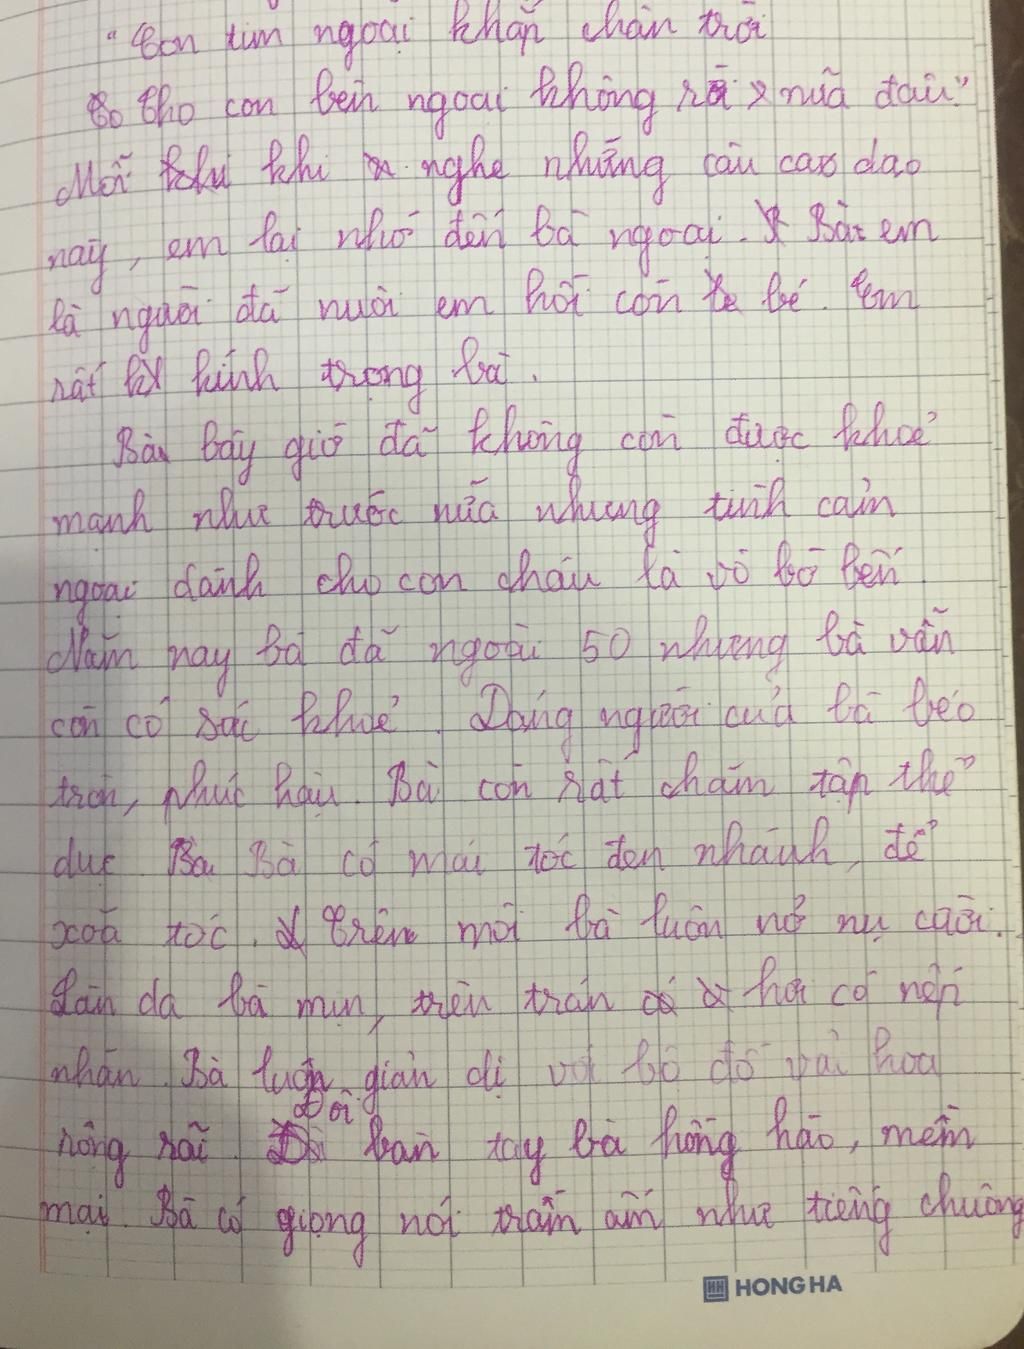 "Con tìm ngoại khắp chân trời
Cho con bên ngoại không rời nữa đâu"
Mỗi khi nghe những câu cao dao
này, em lại nhớ đến bà ngoại. Bà em
là người đã nuôi em hồi còn bé. Em
rất kính trọng bà.
Bà bây giờ đã không còn được khoẻ
mạnh như trước nữa nhưng tình cảm
ngoại dành cho con cháu là vô bờ bến.
Năm nay bà đã ngoài 50 nhưng bà vẫn
còn có sức khoẻ. Dáng người của bà béo
tròn, phúc hậu. Bà còn rất chăm tập thể
dục. Bà có mái tóc đen nhánh, để
xoã tóc. Trên môi bà luôn nở nụ cười.
Làn da bà mịn, trên trán hơi có nếp
nhăn. Bà luôn giản dị với bộ đồ vải hoa
rộng rãi. Đôi bàn tay bà hồng hào, mềm
mại. Bà có giọng nói trầm ấm như tiếng chuông
HONG HA